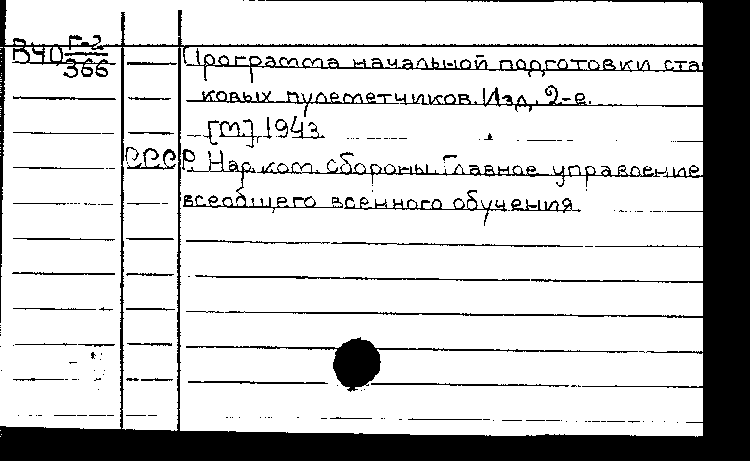 ВЧО Г-2/366 Программа начальной подготовки ста
ковых пулеметчиков. Изд. 2-е.
[М.] 1943.
СССР. Нар. ком. обороны. Главное управление
всеобщего военного обучения.